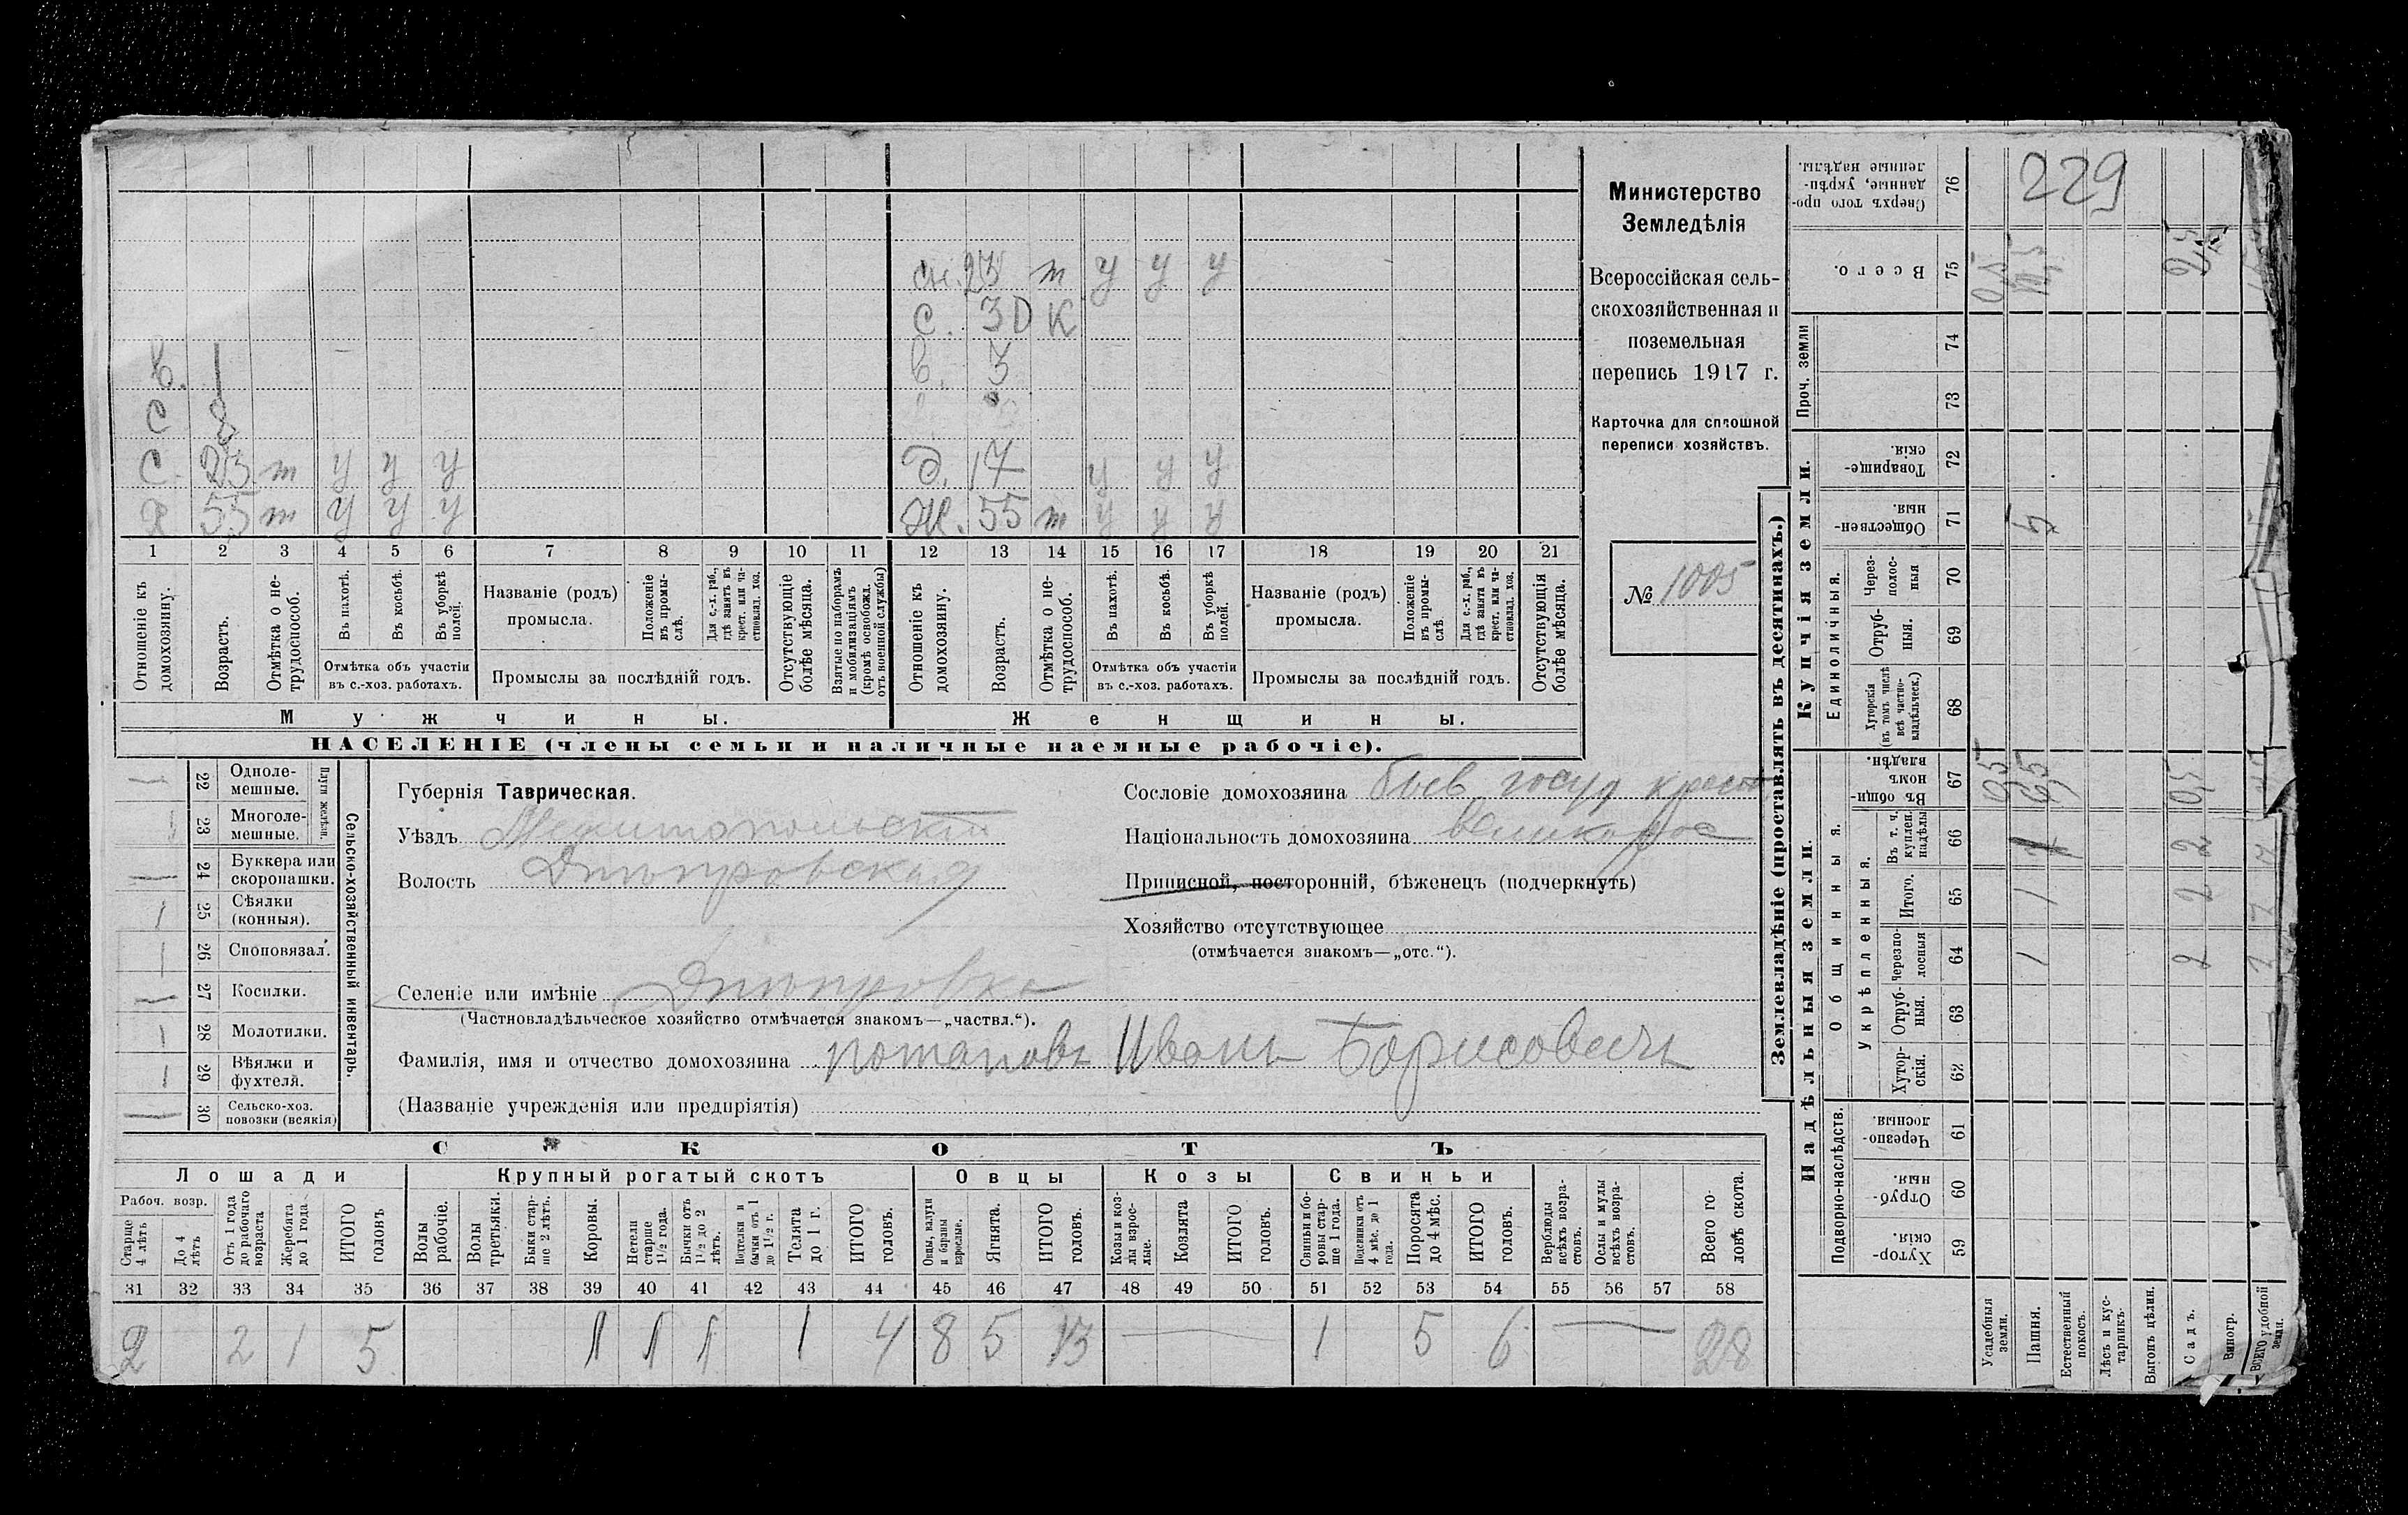 229
Министерство
Земледѣлія
Всероссійская сель-
скохозяйственная и
поземельная
перепись 1917 г.
Карточка для сплошной
переписи хозяйствъ.
№ 1005
сн. 23 т у у у
с. 30 к
в. 1
в. 3
с
с. 23 т у у у
д. 17 у у у
х 55 т у у у
ж. 55 т у у у
1 2 3 4 5 6 7 8 9 10 11 12 13 14 15 16 17 18 19 20 21
Отношеніе къ домохозяину.
Возрастъ.
Отмѣтка о не-трудоспособ.
Въ пахотѣ.
Въ косьбѣ.
Въ уборкѣ полей.
Отмѣтка объ участіи
въ с.-хоз. работахъ.
Названіе (родъ)
промысла.
Положеніе въ промы-слѣ.
Для с.-х. раб., гдѣ занятъ въ крест. или ча-стновлад. хоз.
Промыслы за послѣдній годъ.
Отсутствующіе болѣе мѣсяца.
Взятые по наборамъ и мобилизаціямъ (кромѣ освобожд. отъ военной службы)
Отношеніе къ домохозяину.
Возрастъ.
Отмѣтка о не-трудоспособ.
Въ пахотѣ.
Въ косьбѣ.
Въ уборкѣ полей.
Отмѣтка объ участіи
въ с.-хоз. работахъ.
Названіе (родъ)
промысла.
Положеніе въ промы-слѣ
Для с.-х. раб., гдѣ занята въ крест. или ча-стновлад. хоз.
Промыслы за послѣдній годъ.
Отсутствующія болѣе мѣсяца.
Мужчины.
Женщины.
НАСЕЛЕНІЕ (члены семьи и наличные наемные рабочіе).
Сельско-хозяйственный инвентарь.
Плуги желѣзн.
22 Одноле-мешные.
23 Многоле-мешные.
24 Буккера или скоропашки.
1 25 Сѣялки (конныя).
1 26 Сноповязал.
27 Косилки.
1 28 Молотилки.
1 29 Вѣялки и фухтеля.
30 Сельско-хоз. повозки (всякія)
Губернія Таврическая.
Уѣздъ Мелитопольскій
Волость Днѣпровская
Селеніе или имѣніе Днѣпровка
(Частновладѣльческое хозяйство отмѣчается знакомъ—„частвл.“).
Фамилія, имя и отчество домохозяина Потаповъ Иванъ Борисовичъ
(Названіе учрежденія или предпріятія)
Сословіе домохозяина бывш. госуд крест
Національность домохозяина великорос
Приписной, посторонній, бѣженецъ (подчеркнуть)
Хозяйство отсутствующее
(отмѣчается знакомъ—„отс.“).
СКОТЪ
Лошади
Крупный рогатый скотъ
Овцы
Козы
Свиньи
Рабоч. возр.
Старше 4 лѣтъ
До 4 лѣтъ
Отъ 1 года до рабочаго возраста
Жеребята до 1 года
ИТОГО головъ
Волы рабочіе.
Волы третьяки.
Быки стар-ше 2 лѣтъ.
Коровы.
Нетели старше 1½ года.
Бычки отъ 1½ до 2 лѣтъ.
Подтелки и бычки отъ 1 до 1½ г.
Телята до 1 г.
ИТОГО головъ.
Овцы, валухи и бараны взрослые.
Ягнята.
ИТОГО головъ.
Козы и коз-лы взрос-лые.
Козлята
ИТОГО головъ.
Свиньи и бо-ровы стар-ше 1 года.
Подсвинки отъ 4 мѣс. до 1 года.
Поросята до 4 мѣс.
ИТОГО головъ.
Верблюды всѣхъ возра-стовъ.
Ослы и мулы всѣхъ возра-стовъ.
Всего го-ловъ скота.
31 32 33 34 35 36 37 38 39 40 41 42 43 44 45 46 47 48 49 50 51 52 53 54 55 56 57 58
2 2 1 5 1 1 1 1 4 8 5 13 — 1 5 6 — 28
Землевладѣніе (проставлять въ десятинахъ.)
Надѣльныя земли.
Купчія земли.
Проч. земли
Подворно-наслѣдств.
Общинныя.
Укрѣпленныя.
Единоличныя.
59 Хутор-скія.
60 Отруб-ныя.
61 Черезпо-лосныя.
62 Хутор-скія.
63 Отруб-ныя.
64 Черезпо-лосныя
65 Итого.
66 Въ т. ч. куплен. надѣлы
67 Въ общи-номъ владѣн.
68 Хуторскія (въ томъ числѣ всѣ частно-владѣльческ.)
69 Отруб-ныя.
70 Через-полос-ныя
71 Обществен-ныя.
72 Товарище-скія.
73
74
75 Всего.
76 Сверхъ того про-данные, укрѣп-ленные надѣлы.
Усадебныя земли.
Пашня.
Естественный покосъ.
Лѣсъ и кус-тарникъ.
Выгонъ цѣлин.
Садъ.
Виногр.
Всего удобной земли.